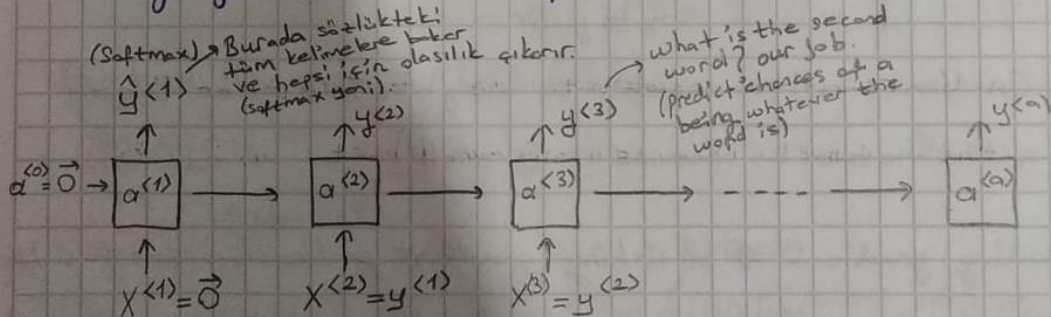 (Softmax) → Burada sözlükteki
tüm kelimelere bakar
ve hepsi için olasılık çıkarır.
(softmax yani).
what is the second
word? our job.
(predict chances of a
being whatever the
word is)
ŷ<1> y<2> y<3> y<9>
a<0> = 0⃗ → a<1> → a<2> → a<3> → - - - - → a<9>
x<1> = 0⃗ x<2> = y<1> x<3> = y<2>